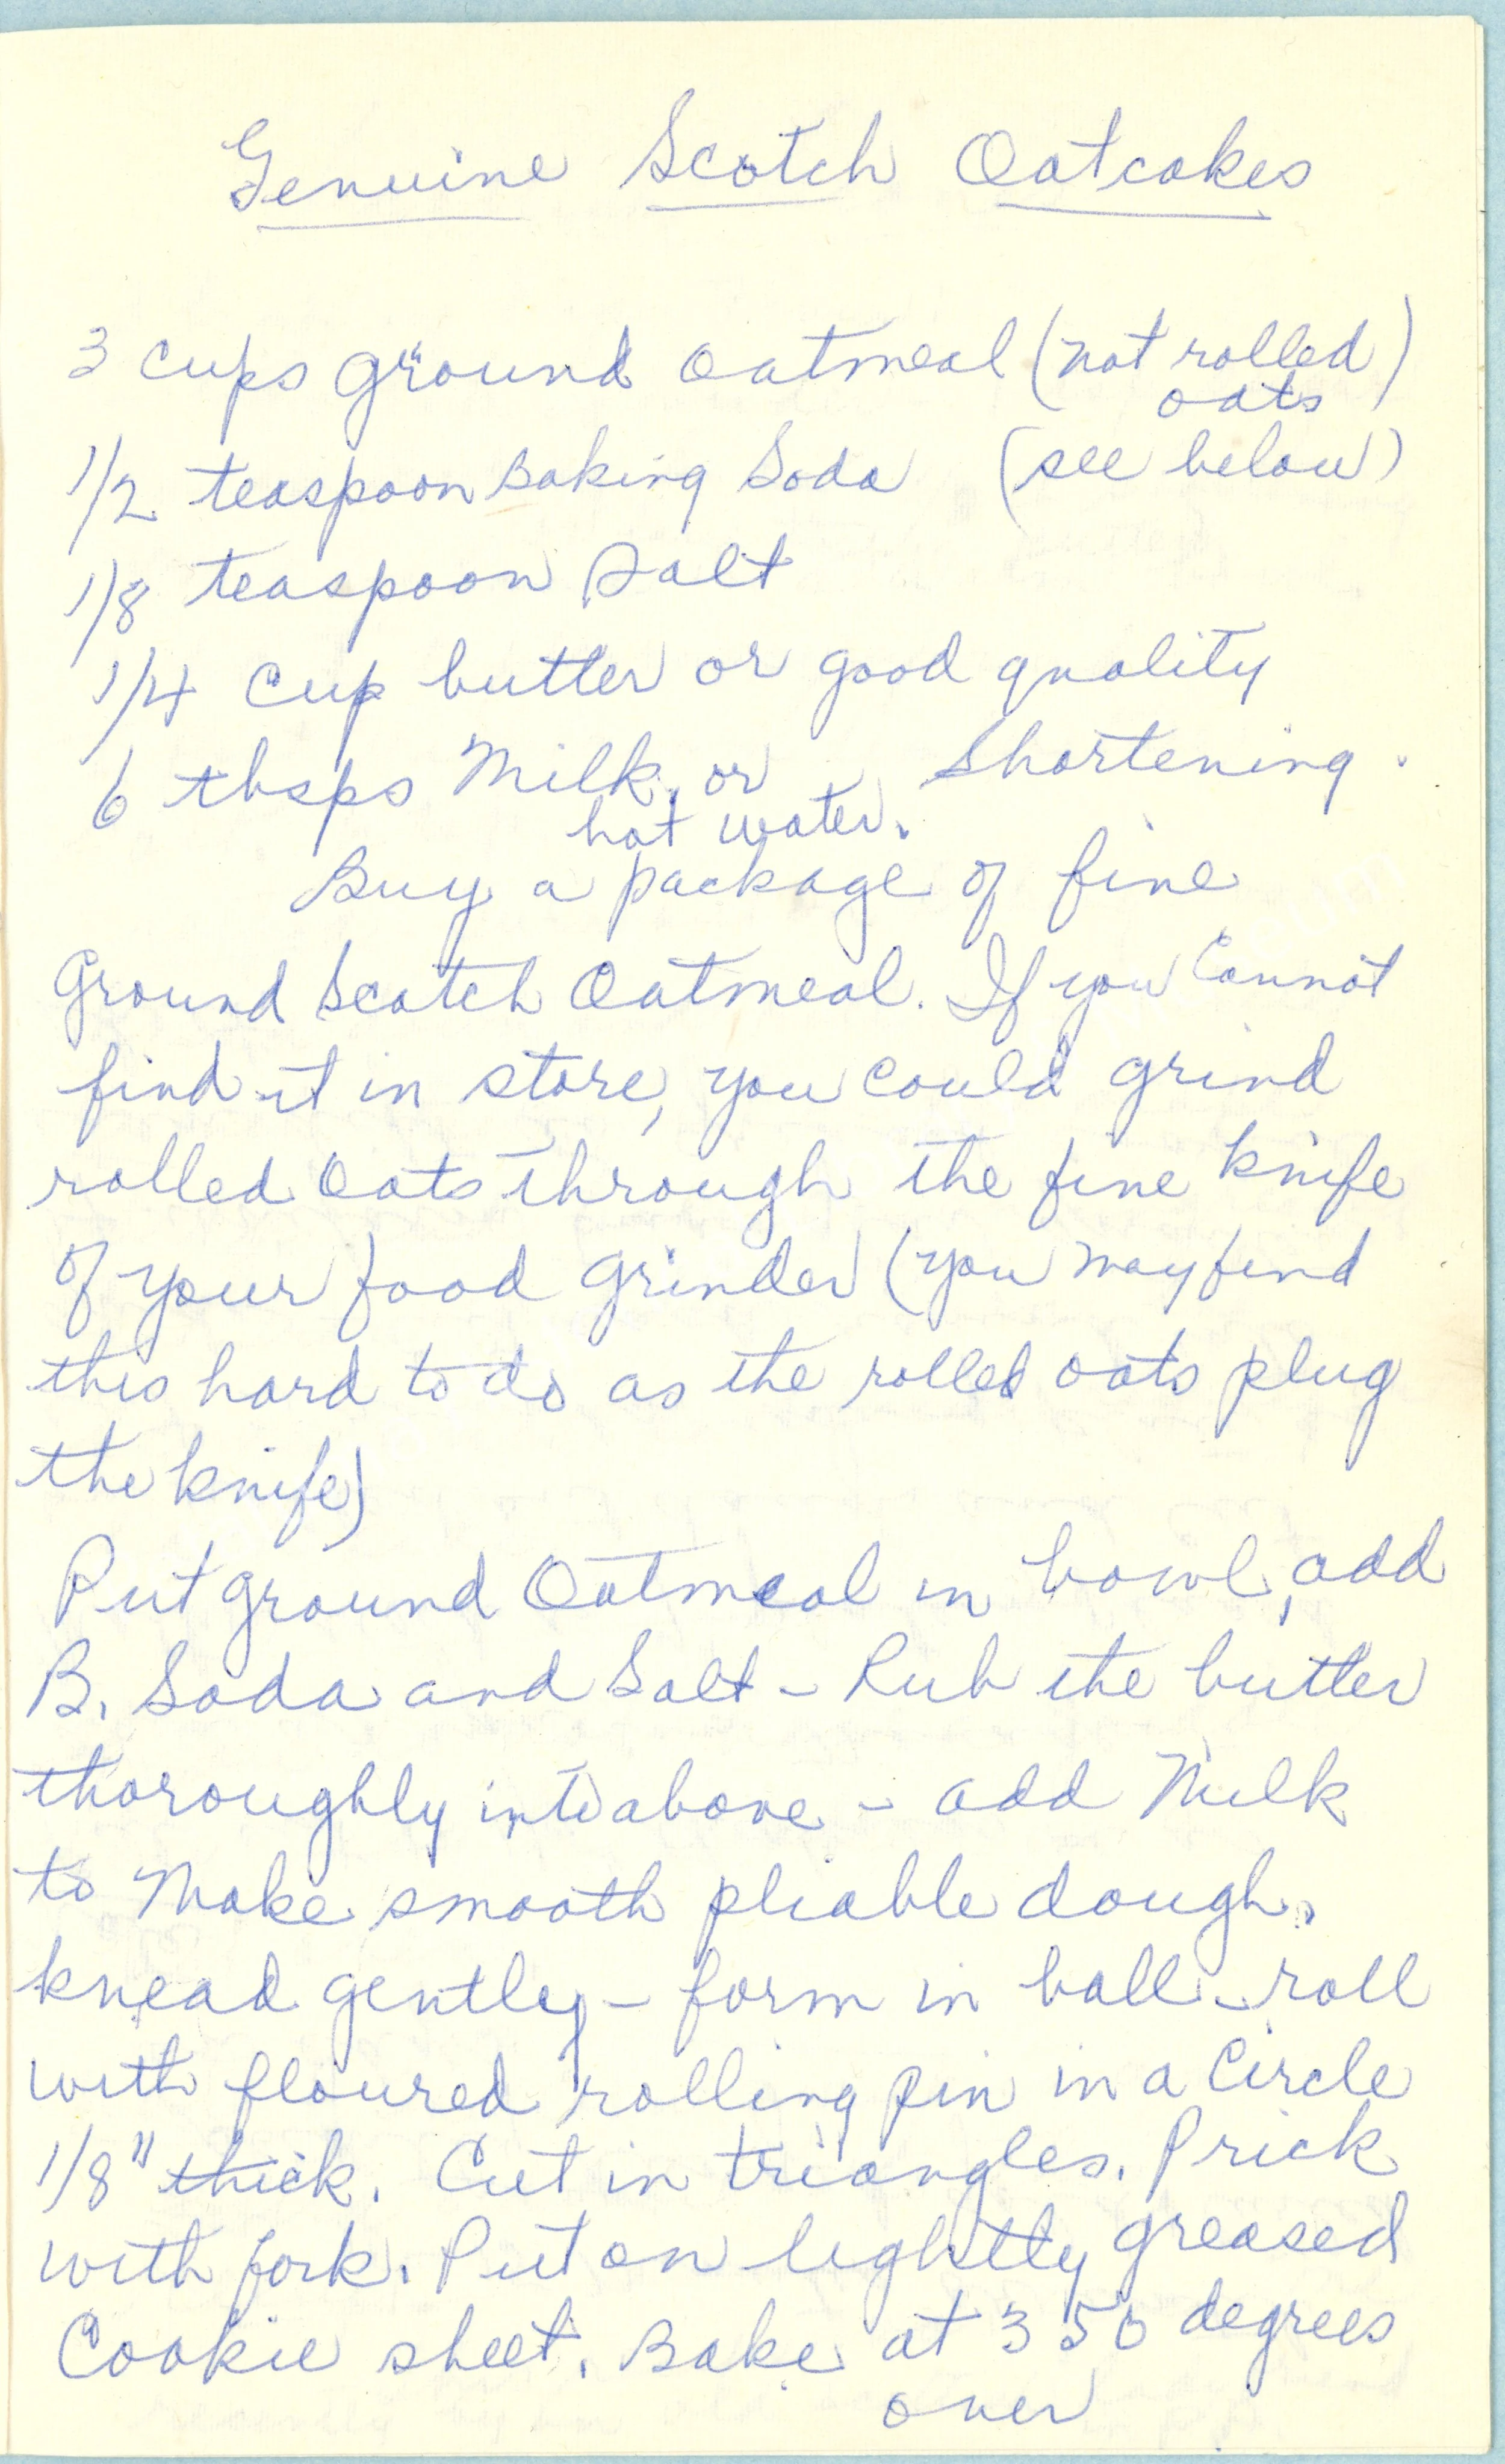 Genuine Scotch Oatcakes
3 cups ground oatmeal (not rolled
oats)
1/2 teaspoon Baking Soda (see below)
1/8 teaspoon Salt
1/4 Cup butter or good quality
Shortening.
6 tbsps Milk, or
hot water.
Buy a package of fine
Ground Scotch Oatmeal. If you Cannot
find it in store, you could grind
rolled Oats through the fine knife
of your food grinder (you may find
this hard to do as the rolled oats plug
the knife)
Put ground Oatmeal in bowl, add
B. Soda and Salt - Rub the butter
thoroughly into above - add Milk
to Make smooth pliable dough.
knead gently - form in ball - roll
with floured rolling pin in a Circle
1/8" thick. Cut in triangles. Prick
with fork. Put on lightly greased
Cookie sheet. Bake at 350 degrees
over